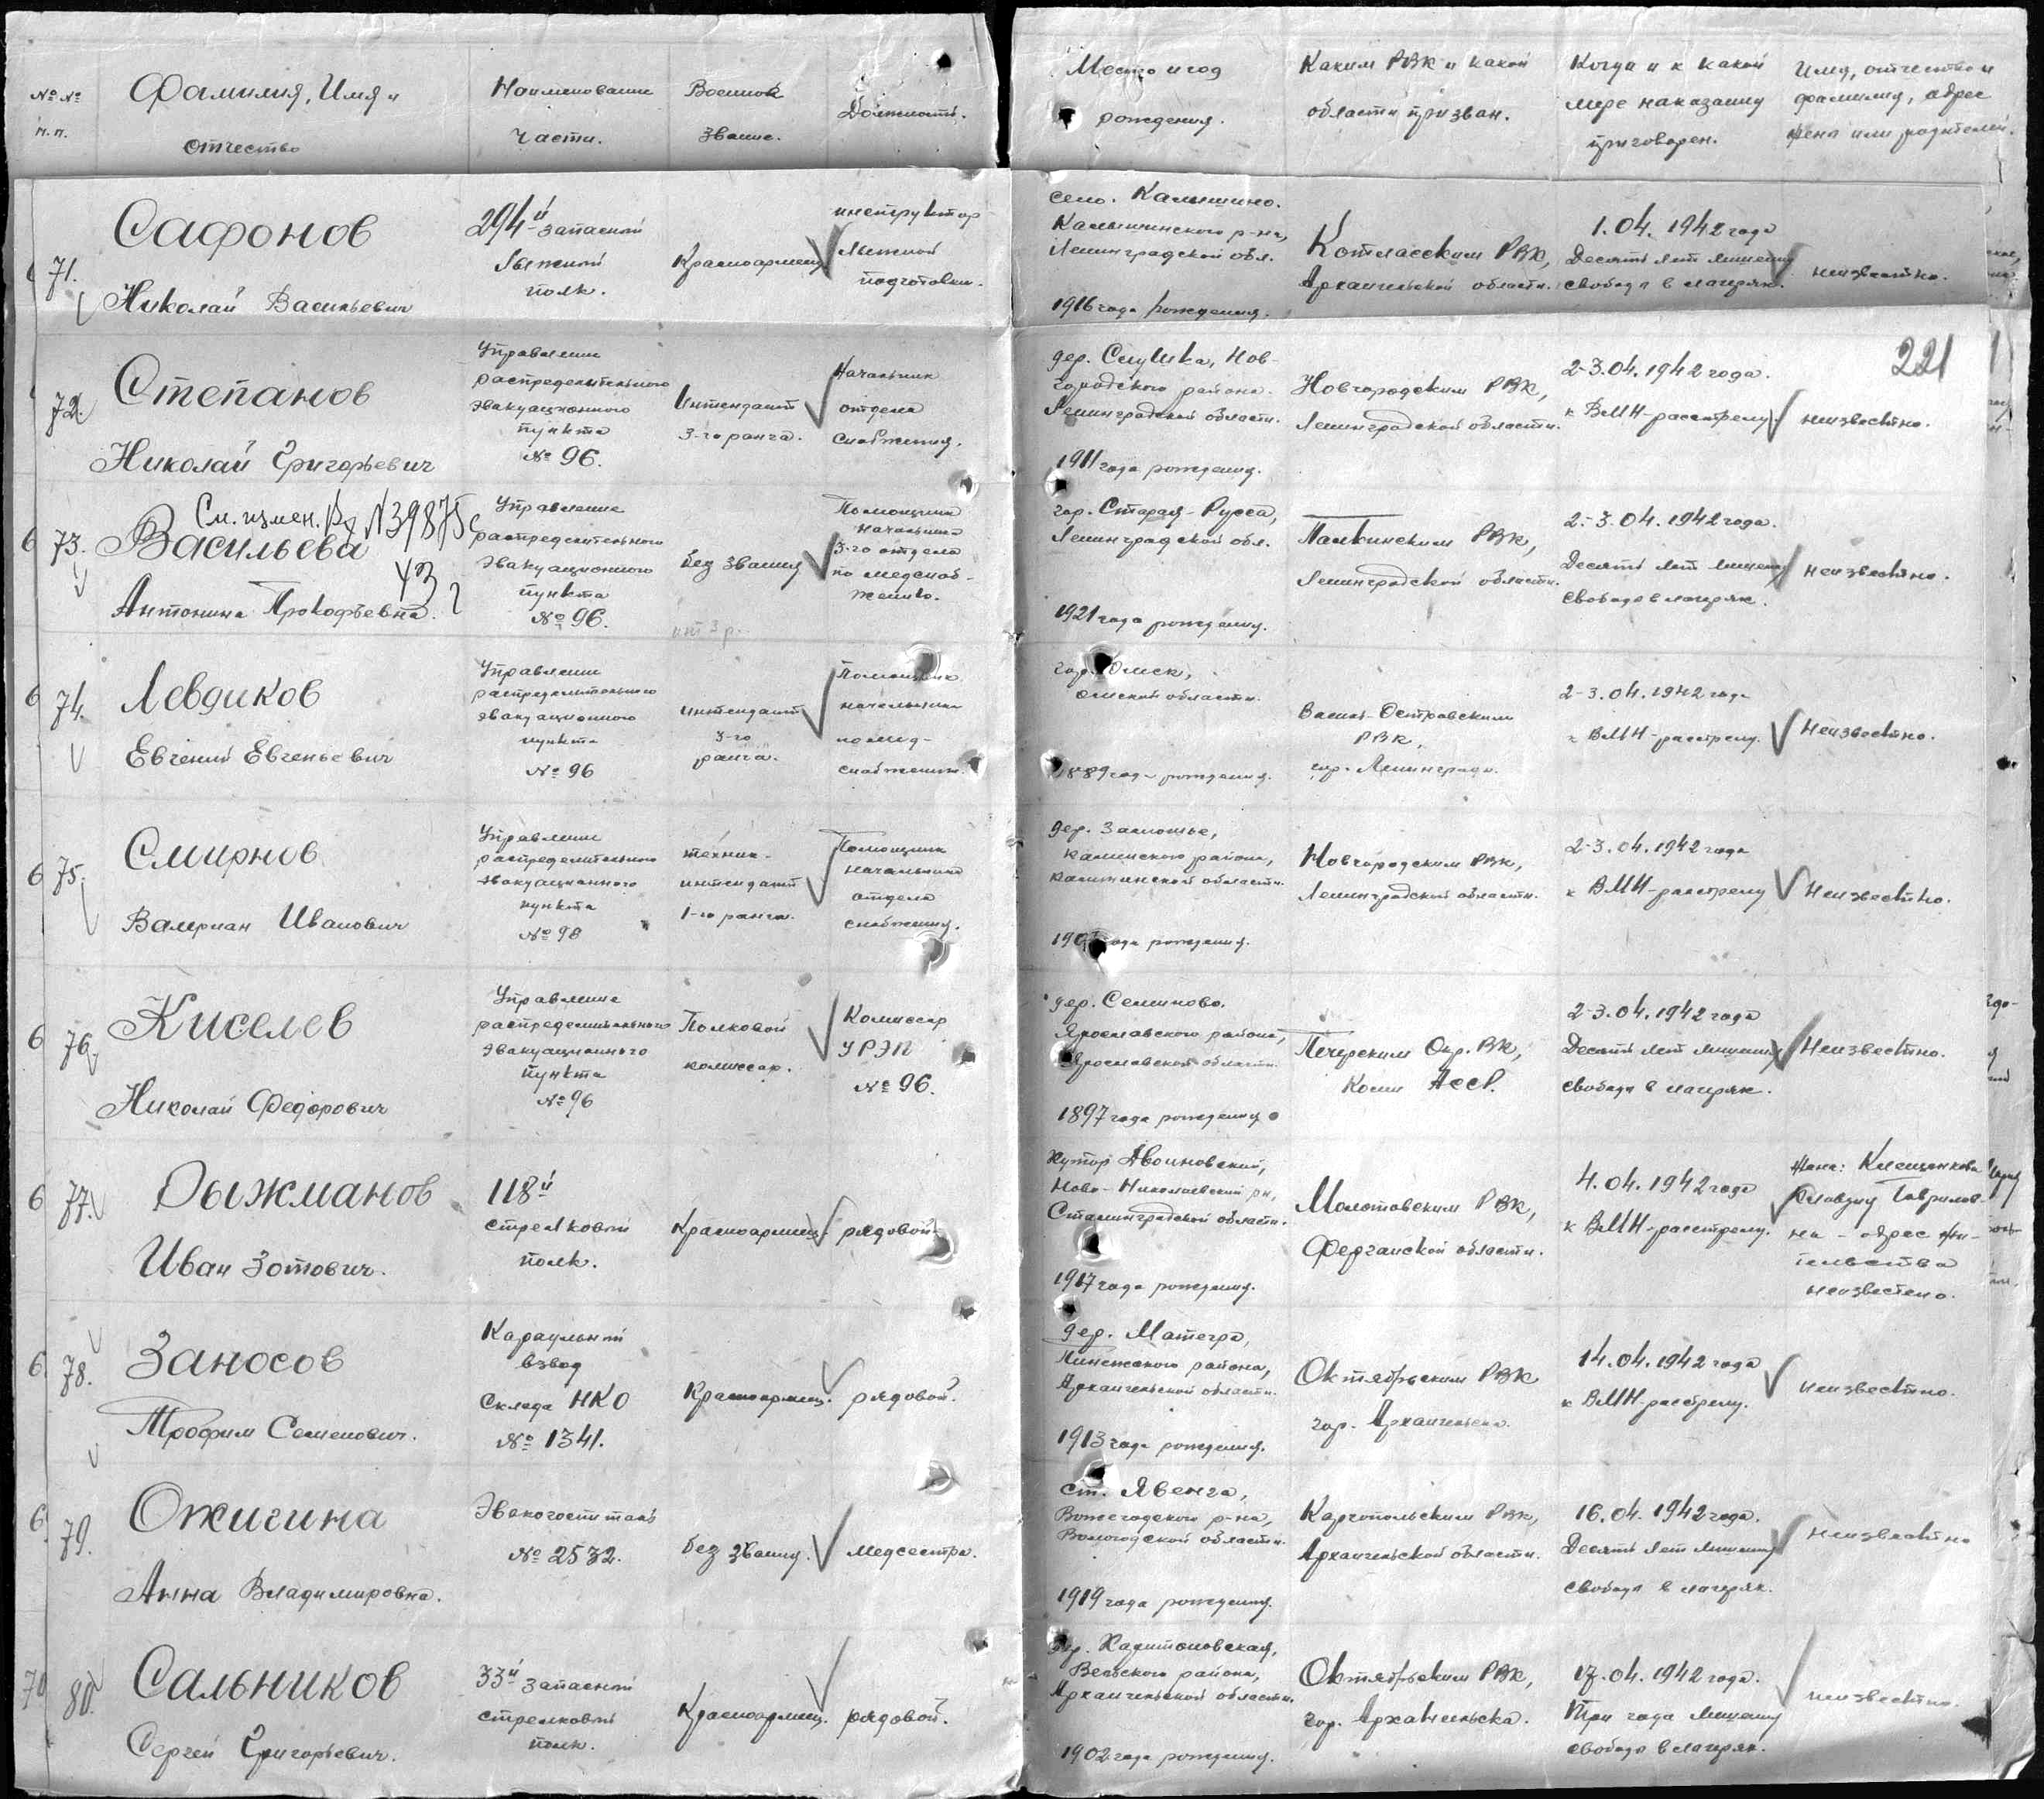 №№ п.п.
Фамилия, Имя и отчество
Наименование части.
Военное звание.
Должность.
Место и год рождения.
Каким РВК и какой области призван.
Когда и к какой мере наказания приговорен.
Имя, отчество и фамилия, адрес жены или родителей.
221
71.
Сафонов
Николай Васильевич
294й запасной
лыжный
полк.
Красноармеец
инструктор
лыжной
подготовки.
село. Калишино.
Ленинградской обл.
1916 года рождения.
Котласским РВК,
Архангельской области.
1.04.1942 года
Десять лет лишения
свободы в лагерях.
неизвестно.
72.
Степанов
Николай Григорьевич
Управление
распределительного
эвакуационного
пункта
№ 96.
Интендант
3-го ранга.
Начальник
отдела
снабжения.
дер. Нов-
городского района.
Ленинградской области.
1911 года рождения.
Новгородским РВК,
Ленинградской области.
2-3.04.1942 года.
к ВМН-расстрелу.
неизвестно.
См. измен. Вх N39875с
43 г
73.
Васильева
Антонина Прокофьевна.
Управление
распределительного
эвакуационного
пункта
№ 96.
без звания
инт 3 р.
Помощник
начальника
3-го отдела
по медснаб-
жению.
гор. Старая-Русса,
Ленинградской обл.
1921 года рождения.
Палкинским РВК,
Ленинградской области.
2-3.04.1942 года.
Десять лет лишения
свободы в лагерях.
неизвестно.
74.
Левдиков
Евгений Евгеньевич
Управление
распределительного
эвакуационного
пункта
№ 96
интендант
3-го
ранга.
Помощник
начальника
по мед-
снабжению.
гор. Омск,
Омской области.
1889 года рождения.
Васил-Островским
РВК,
гор. Ленинграда.
2-3.04.1942 года
к ВМН-расстрелу.
Неизвестно.
75.
Смирнов
Валериан Иванович
Управление
распределительного
эвакуационного
пункта
№ 96
техник-
интендант
1-го ранга.
Помощник
начальника
отдела
снабжения.
дер. Залютье,
района,
Калининской области.
года рождения.
Новгородским РВК,
Ленинградской области.
2-3.04.1942 года
к ВМН-расстрелу
Неизвестно.
76.
Киселев
Николай Федорович
Управление
распределительного
эвакуационного
пункта
№ 96
Полковой
комиссар.
Комиссар
УРЭП
№ 96.
дер. Семиново.
Ярославского района,
Ярославской области.
1897 года рождения
Печерским Окр. ВК,
Коми АССР.
2-3.04.1942 года
Десять лет лишения
свободы в лагерях.
Неизвестно.
77.
Рыжманов
Иван Зотович.
118й
стрелковый
полк.
Красноармеец.
рядовой.
Хутор Двоиновский,
Ново-Николаевский рн,
Сталинградской области.
1917 года рождения.
Молотовским РВК,
Ферганской области.
4.04.1942 года
к ВМН-расстрелу.
Жена: Клещенкова
Клавдия Гаврилов-
на - адрес жи-
тельства
неизвестно.
78.
Заносов
Трофим Семенович.
Караульный
взвод
Склада НКО
№ 1341.
Красноармеец.
рядовой.
дер. Матера,
Пинежского района,
Архангельской области.
1913 года рождения.
Октябрьским РВК
гор. Архангельска.
14.04.1942 года
к ВМН-расстрелу.
неизвестно.
79.
Ожигина
Анна Владимировна.
Эвакогоспиталь
№ 2532.
без звания.
Медсестра.
ст. Явенга,
Вожегодского р-на,
Вологодской области.
1919 года рождения.
Каргопольским РВК,
Архангельской области.
16.04.1942 года.
Десять лет лишения
свободы в лагерях.
неизвестно
80.
Сальников
Сергей Григорьевич.
33й запасной
стрелковый
полк.
Красноармеец.
рядовой.
дер. Харитоновская,
Вельского района,
Архангельской области.
1902 года рождения.
Октябрьским РВК,
гор. Архангельска.
17.04.1942 года.
Три года лишения
свободы в лагерях.
неизвестно.